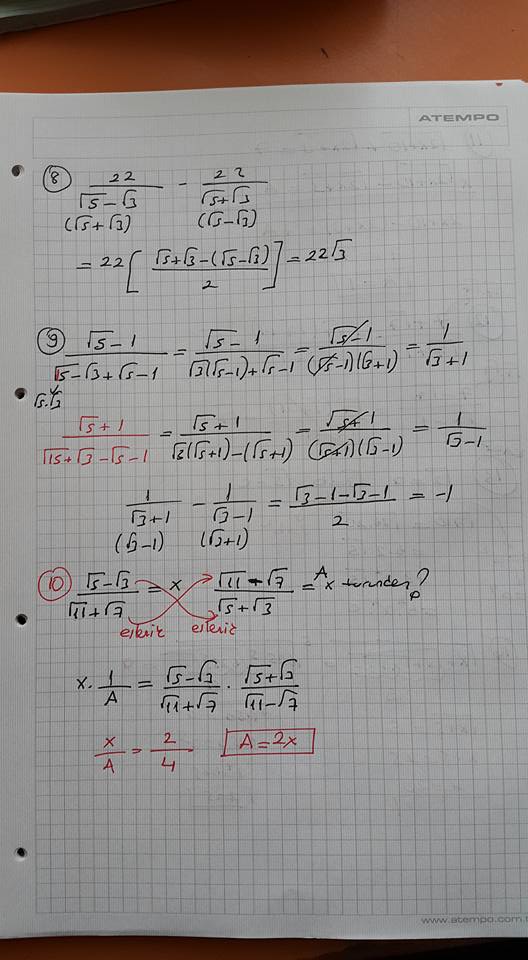 ATEMPO
8 22/(√5-√3) - 22/(√5+√3)
(√5+√3) (√5-√3)
= 22[(√5+√3-(√5-√3))/2] = 22√3
9 (√5-1)/(√15-√3+√5-1) = (√5-1)/(√3(√5-1)+√5-1) = (√5-1)/((√5-1)(√3+1)) = 1/(√3+1)
√5.√3
(√5+1)/(√15+√3-√5-1) = (√5+1)/(√3(√5+1)-(√5+1)) = (√5+1)/((√5+1)(√3-1)) = 1/(√3-1)
1/(√3+1) - 1/(√3-1) = (√3-1-√3-1)/2 = -1
(√3-1) (√3+1)
10 (√5-√3)/(√11+√7) = x (√11-√7)/(√5+√3) = A x türünden?
eslenik eslenik
x.1/A = (√5-√3)/(√11+√7) . (√5+√3)/(√11-√7)
x/A = 2/4 A=2x
www.atempo.com